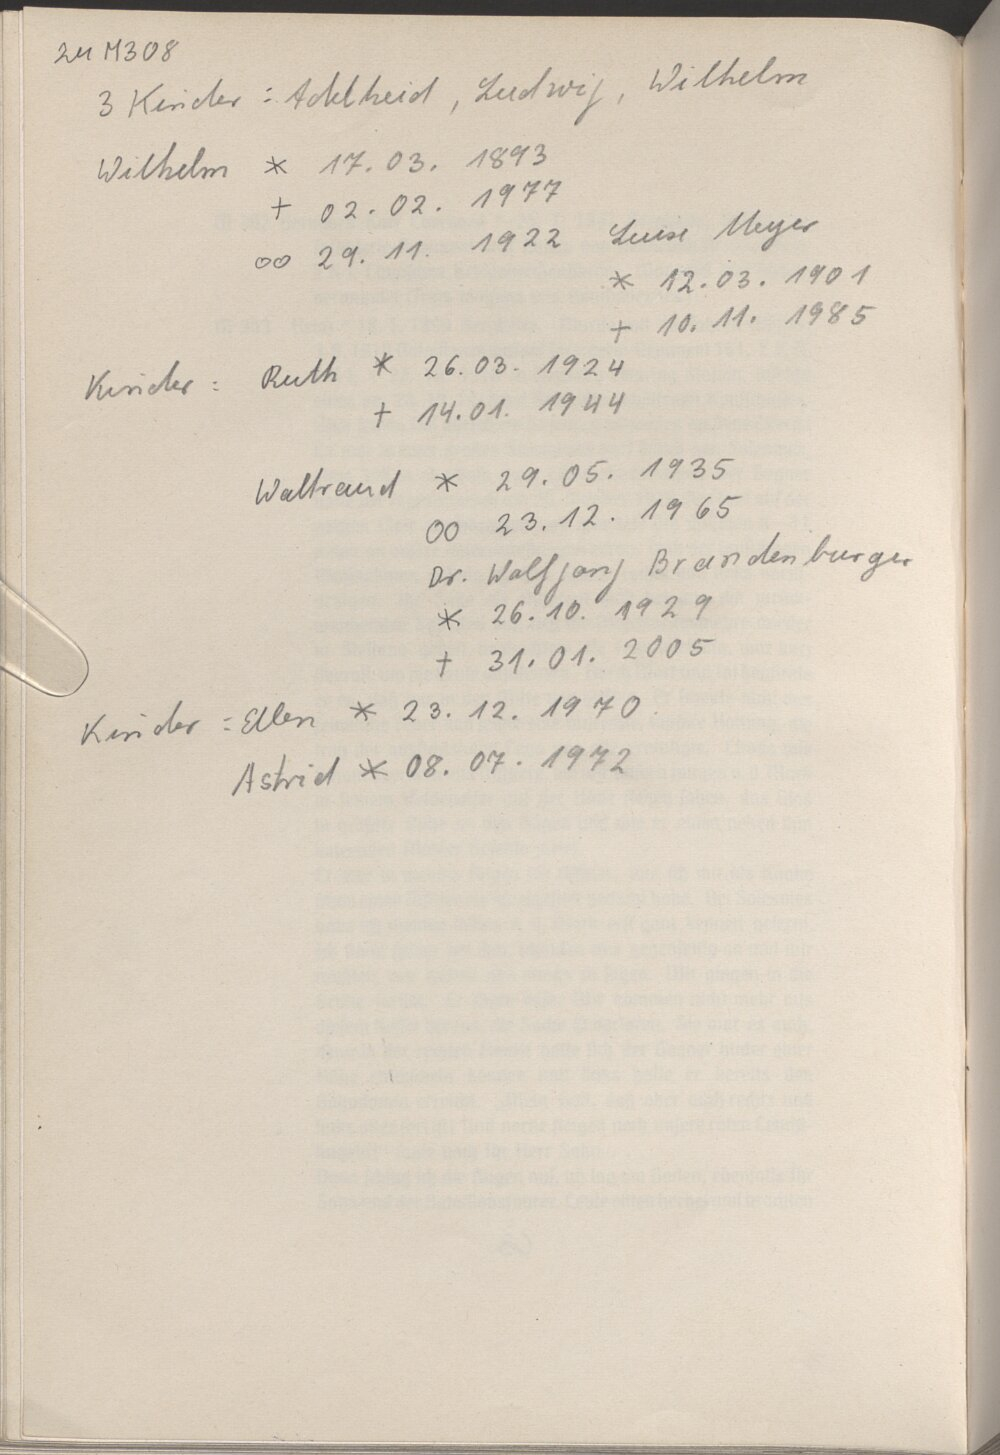 zu M308
3 Kinder : Adelheid, Ludwig, Wilhelm
Wilhelm * 17.03. 1893
+ 02.02. 1977
oo 29.11. 1922 Luise Meyer
* 12.03. 1901
+ 10.11. 1985
Kinder : Ruth * 26.03. 1924
+ 14.01. 1944
Waltraud * 29.05. 1935
oo 23.12. 1965
Dr. Wolfgang Brandenburger
* 26.10. 1929
+ 31.01. 2005
Kinder : Ellen * 23.12. 1970
Astrid * 08.07. 1972